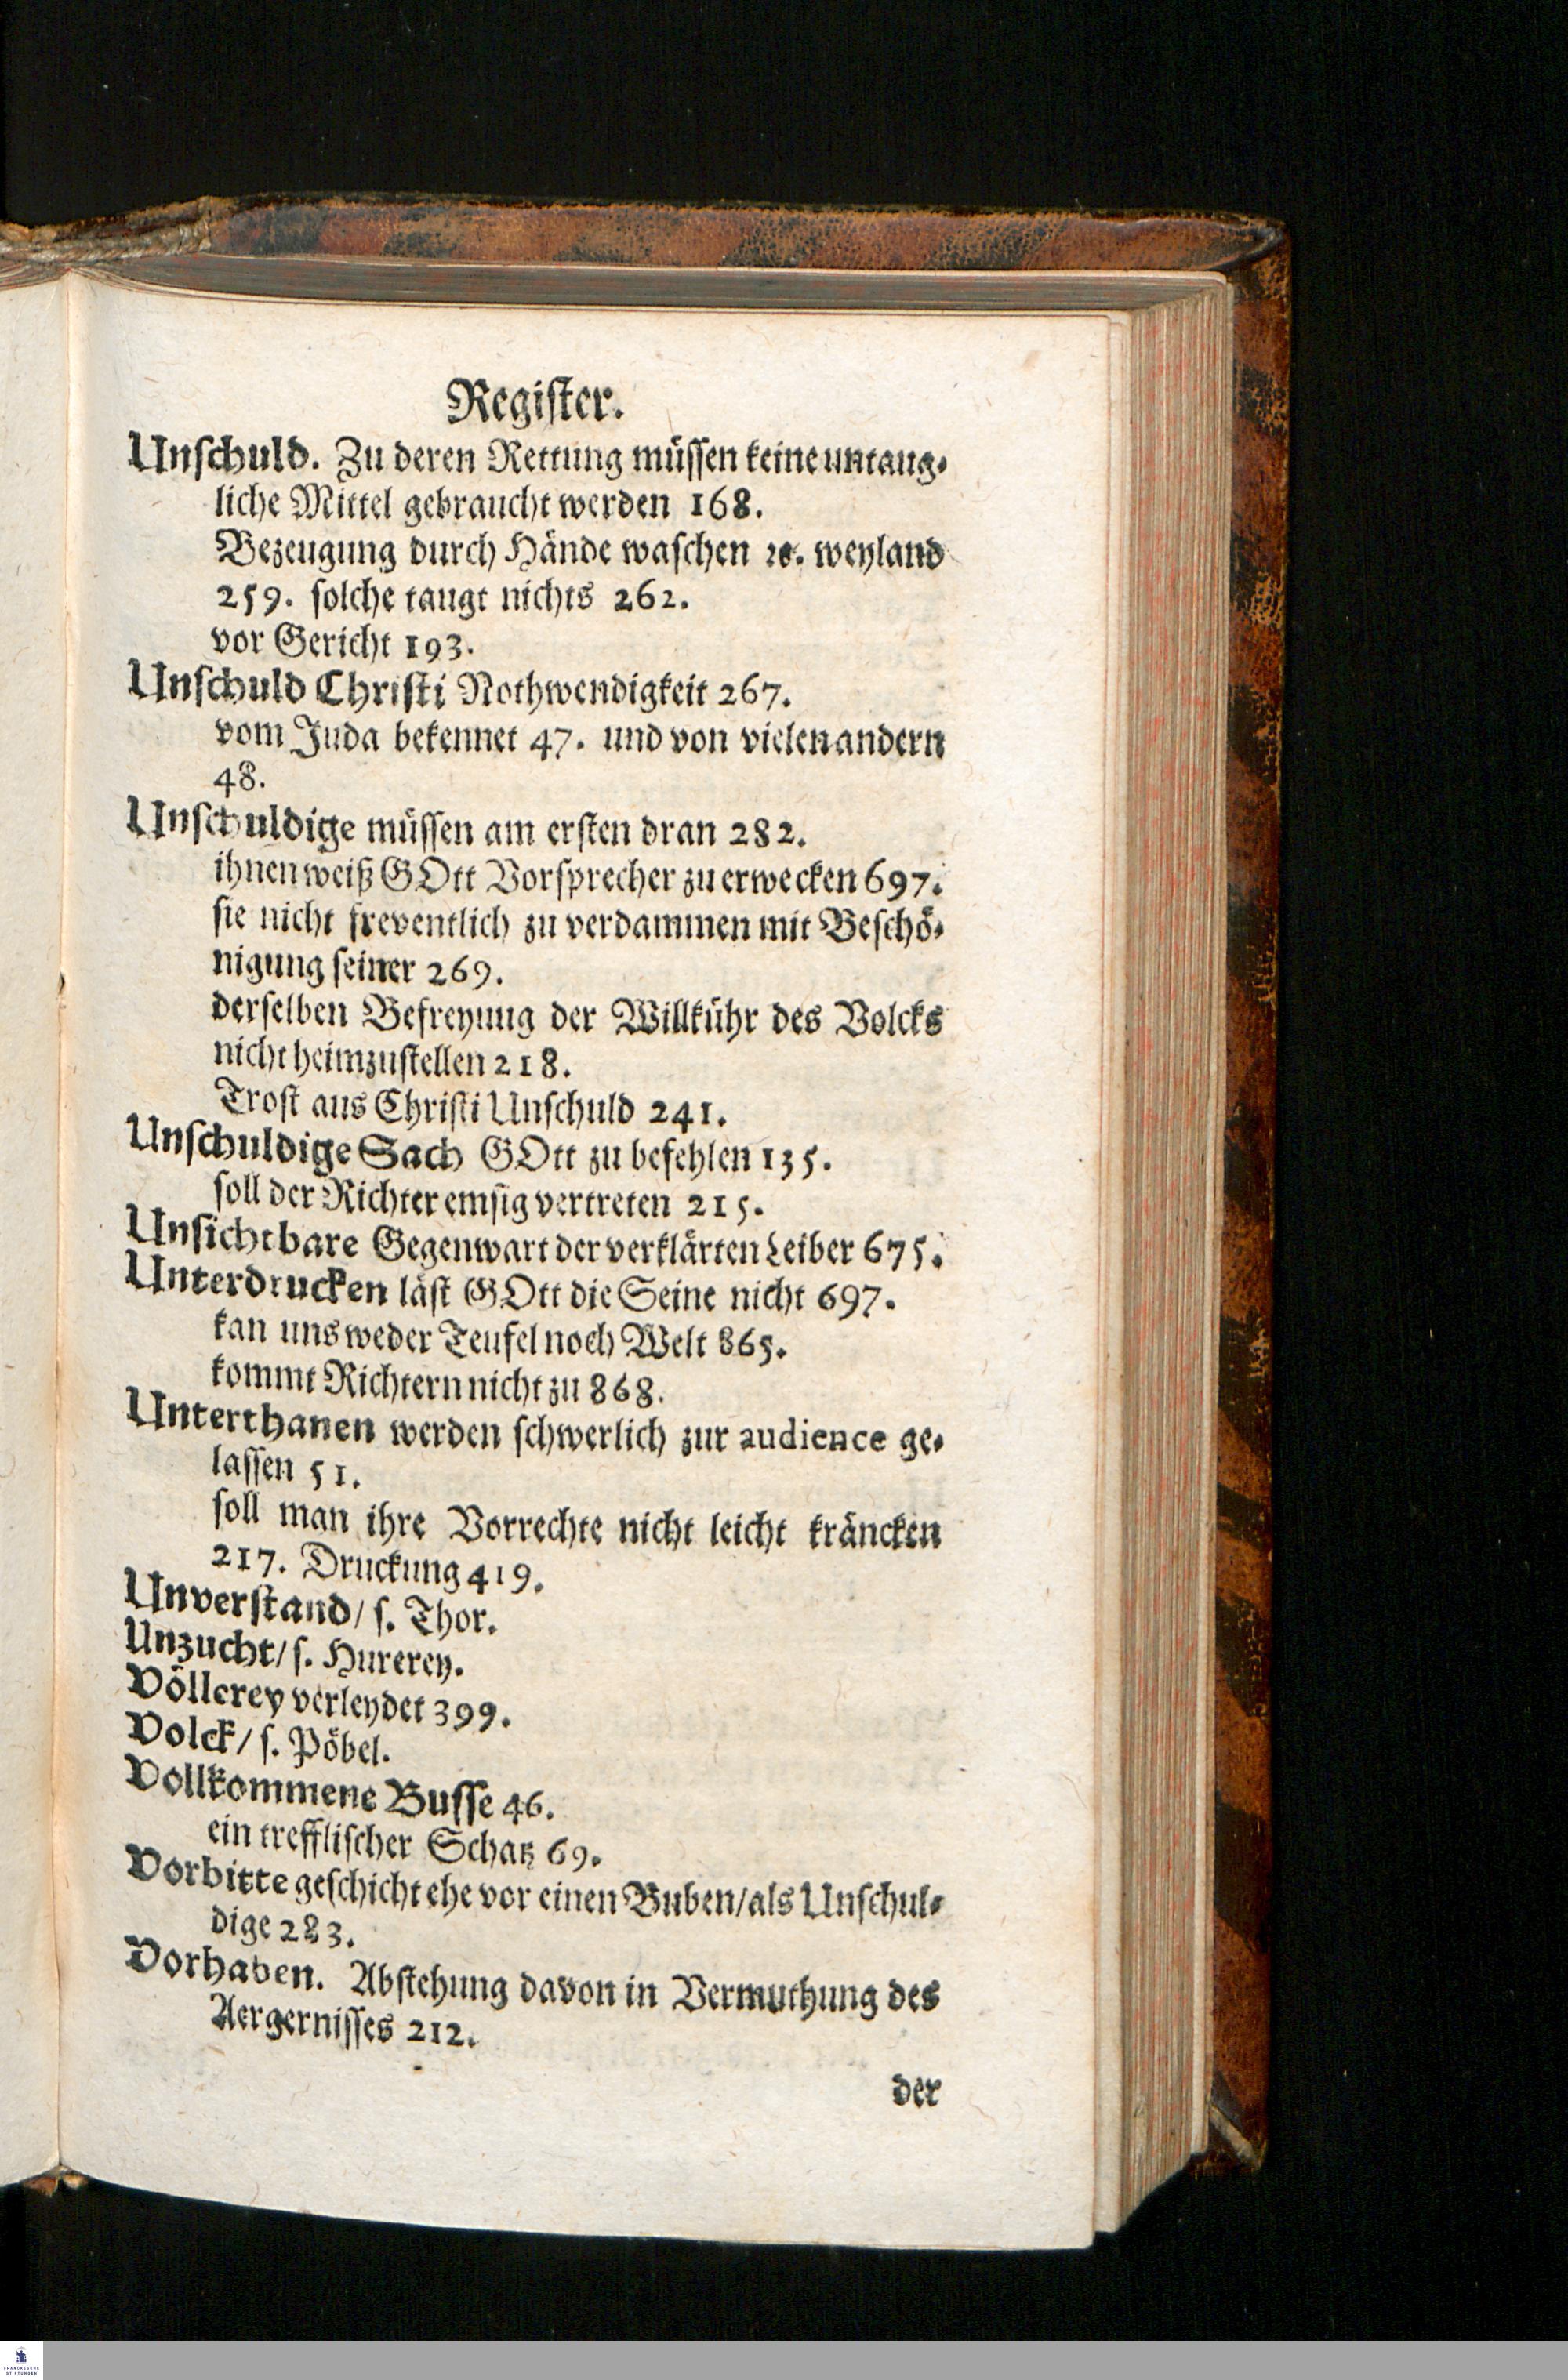 Register.
Unschuld. Zu deren Rettung müssen keine untaug-
liche Mittel gebraucht werden 168.
Bezeugung durch Hände waschen ꝛc. weyland
259. solche taugt nichts 262.
vor Gericht 193.
Unschuld Christi Nothwendigkeit 267.
vom Juda bekennet 47. und von vielen andern
48.
Unschuldige müssen am ersten dran 282.
ihnen weiß GOtt Vorsprecher zu erwecken 697.
sie nicht freventlich zu verdammen mit Beschö-
nigung seiner 269.
derselben Befreyung der Willkühr des Volcks
nicht heimzustellen 218.
Trost aus Christi Unschuld 241.
Unschuldige Sach GOtt zu befehlen 135.
soll der Richter emsig vertreten 215.
Unsichtbare Gegenwart der verklärten Leiber 675.
Unterdrucken läst GOtt die Seine nicht 697.
kan uns weder Teufel noch Welt 865.
kommt Richtern nicht zu 868.
Unterthanen werden schwerlich zur audience ge-
lassen 51.
soll man ihre Vorrechte nicht leicht kräncken
217. Druckung 419.
Unverstand/ s. Thor.
Unzucht/ s. Hurerey.
Völlerey verleydet 399.
Volck/ s. Pöbel.
Vollkommene Busse 46.
ein trefflischer Schatz 69.
Vorbitte geschicht ehe vor einen Buben/als Unschul-
dige 283.
Vorhaben. Abstehung davon in Vermuthung des
Aergernisses 212.
der
FRANCKESCHE
STIFTUNGEN